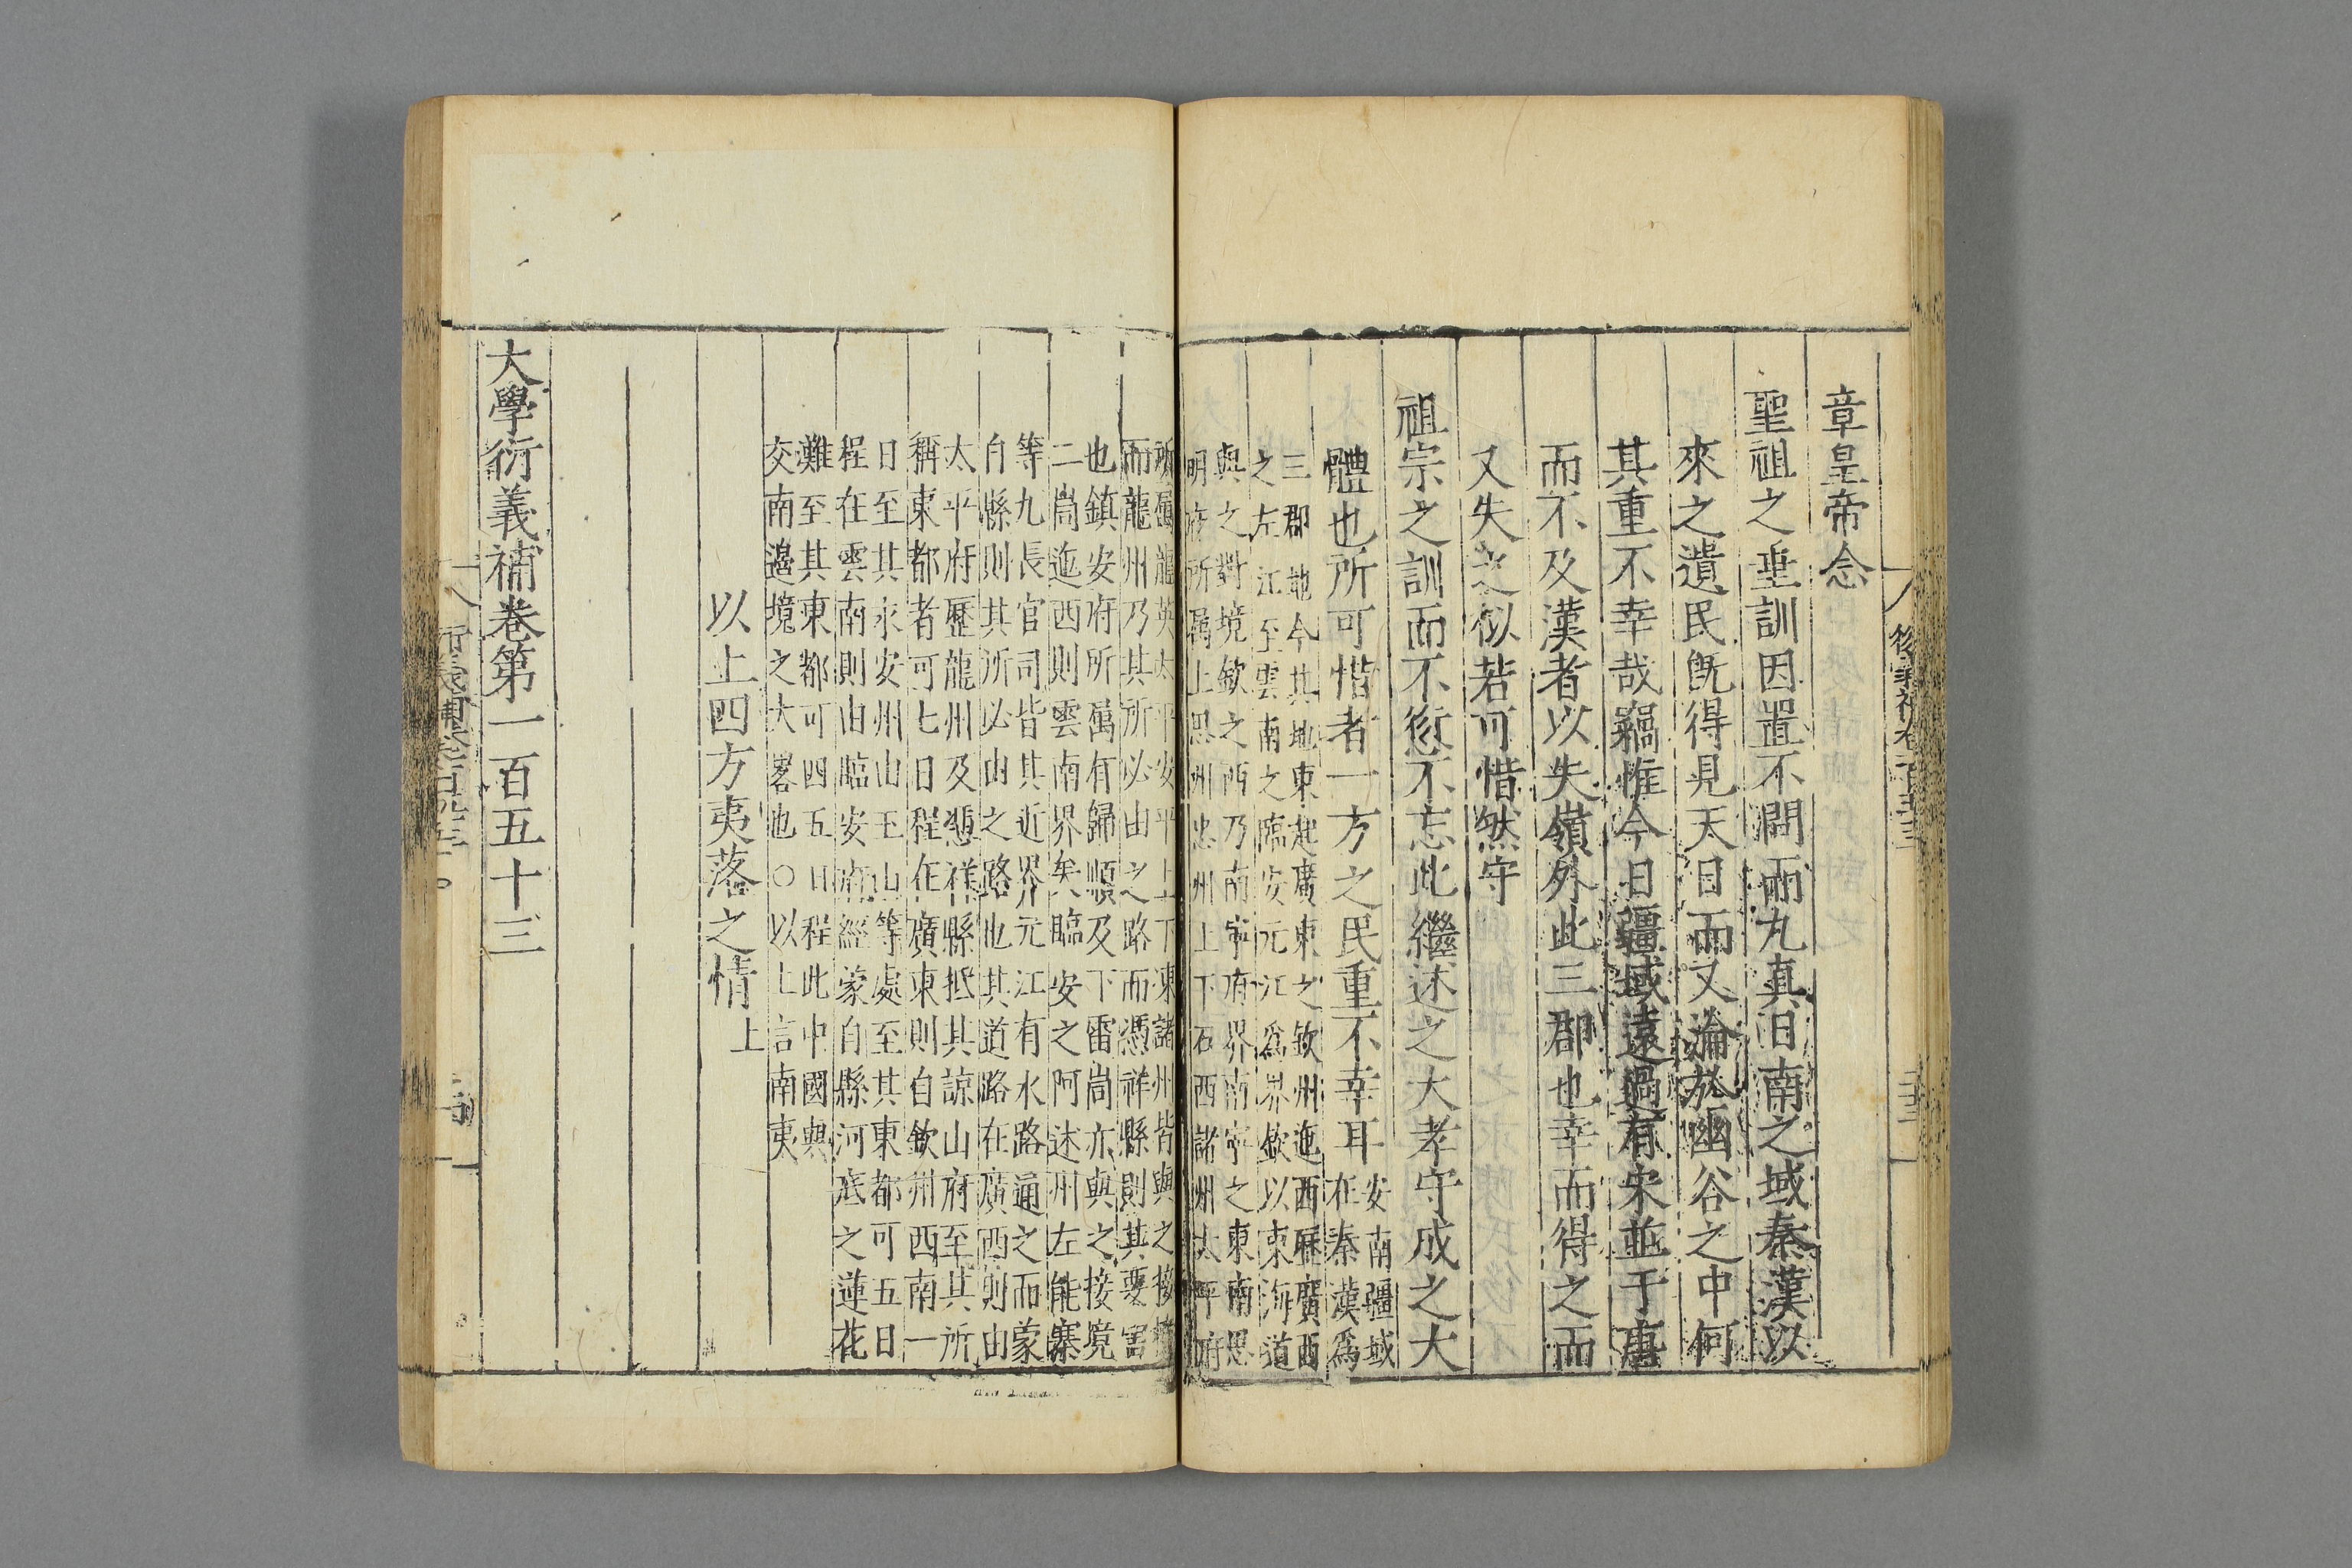 章皇帝念
聖祖之聖訓因置不問而九真日南之域秦漢以
來之遺民既得見天日而又淪於幽谷之中何
其重不幸哉竊惟今日疆域遠過有宋並于唐
而不及漢者以失嶺外此三郡也幸而得之而
又失之似若可惜然守
祖宗之訓而不愆不忘此繼述之大孝守成之大
體也所可惜者一方之民重不幸耳
安南疆域
在秦漢爲
三郡地今其地東起廣東之欽州迤西歷廣西
之左江至雲南之臨安元江爲界欽以東海道
與之對境欽之西乃南寧府界南寧之東南思
明府所屬上思州忠州上下石西諸州太平府
所屬龍英太平安平上下凍諸州皆與之接
而龍州乃其所必由之路而憑祥縣則其要害
也鎮安府所屬有歸順及下雷峒亦與之接境
二峒迤西則雲南界矣臨安之阿迷州左能寨
等九長官司皆其近界元江有水路通之而蒙
自縣則其所必由之路也其道路在廣西則由
太平府歷龍州及憑祥縣抵其諒山府至其所
稱東都者可七日程在廣東則自欽州西南一
日至其永安州由玉山等處至其東都可五日
程在雲南則由臨安府經蒙自縣河底之蓮花
灘至其東都可四五日程此中國與
交南邊境之大畧也○以上言南夷
以上四方夷落之情上
大學衍義補卷第一百五十三